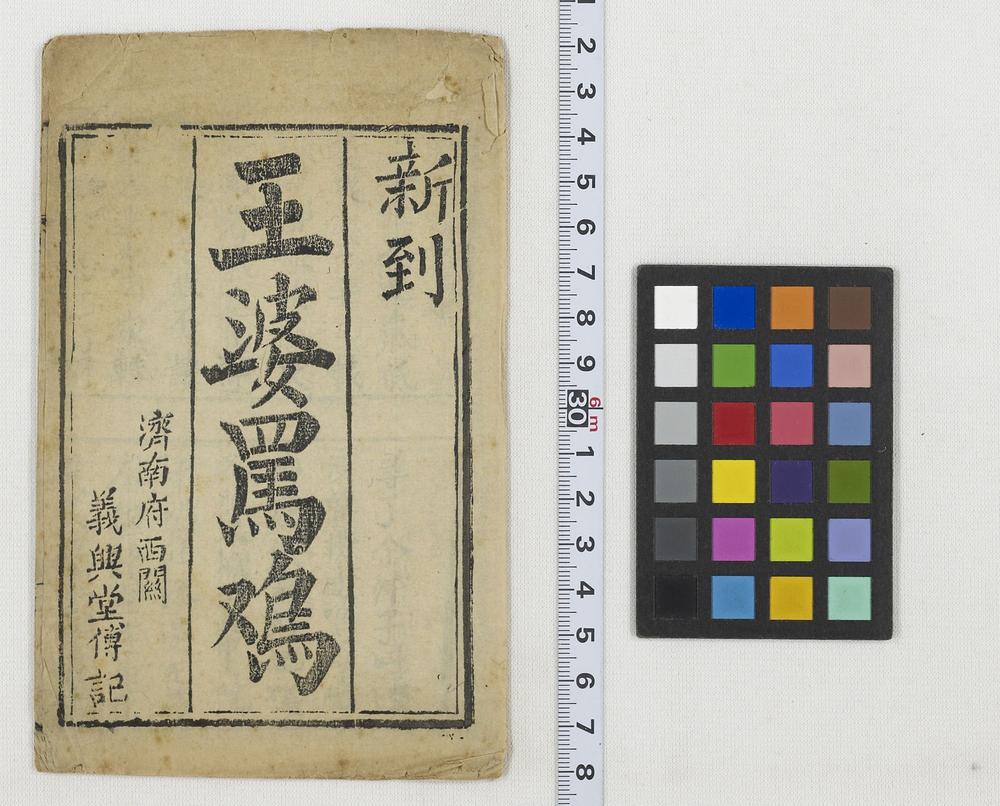 新到
王婆罵鳮
濟南府西關
義興堂傅記
1
2
3
4
5
6
7
8
9
30
6m
1
2
3
4
5
6
7
8